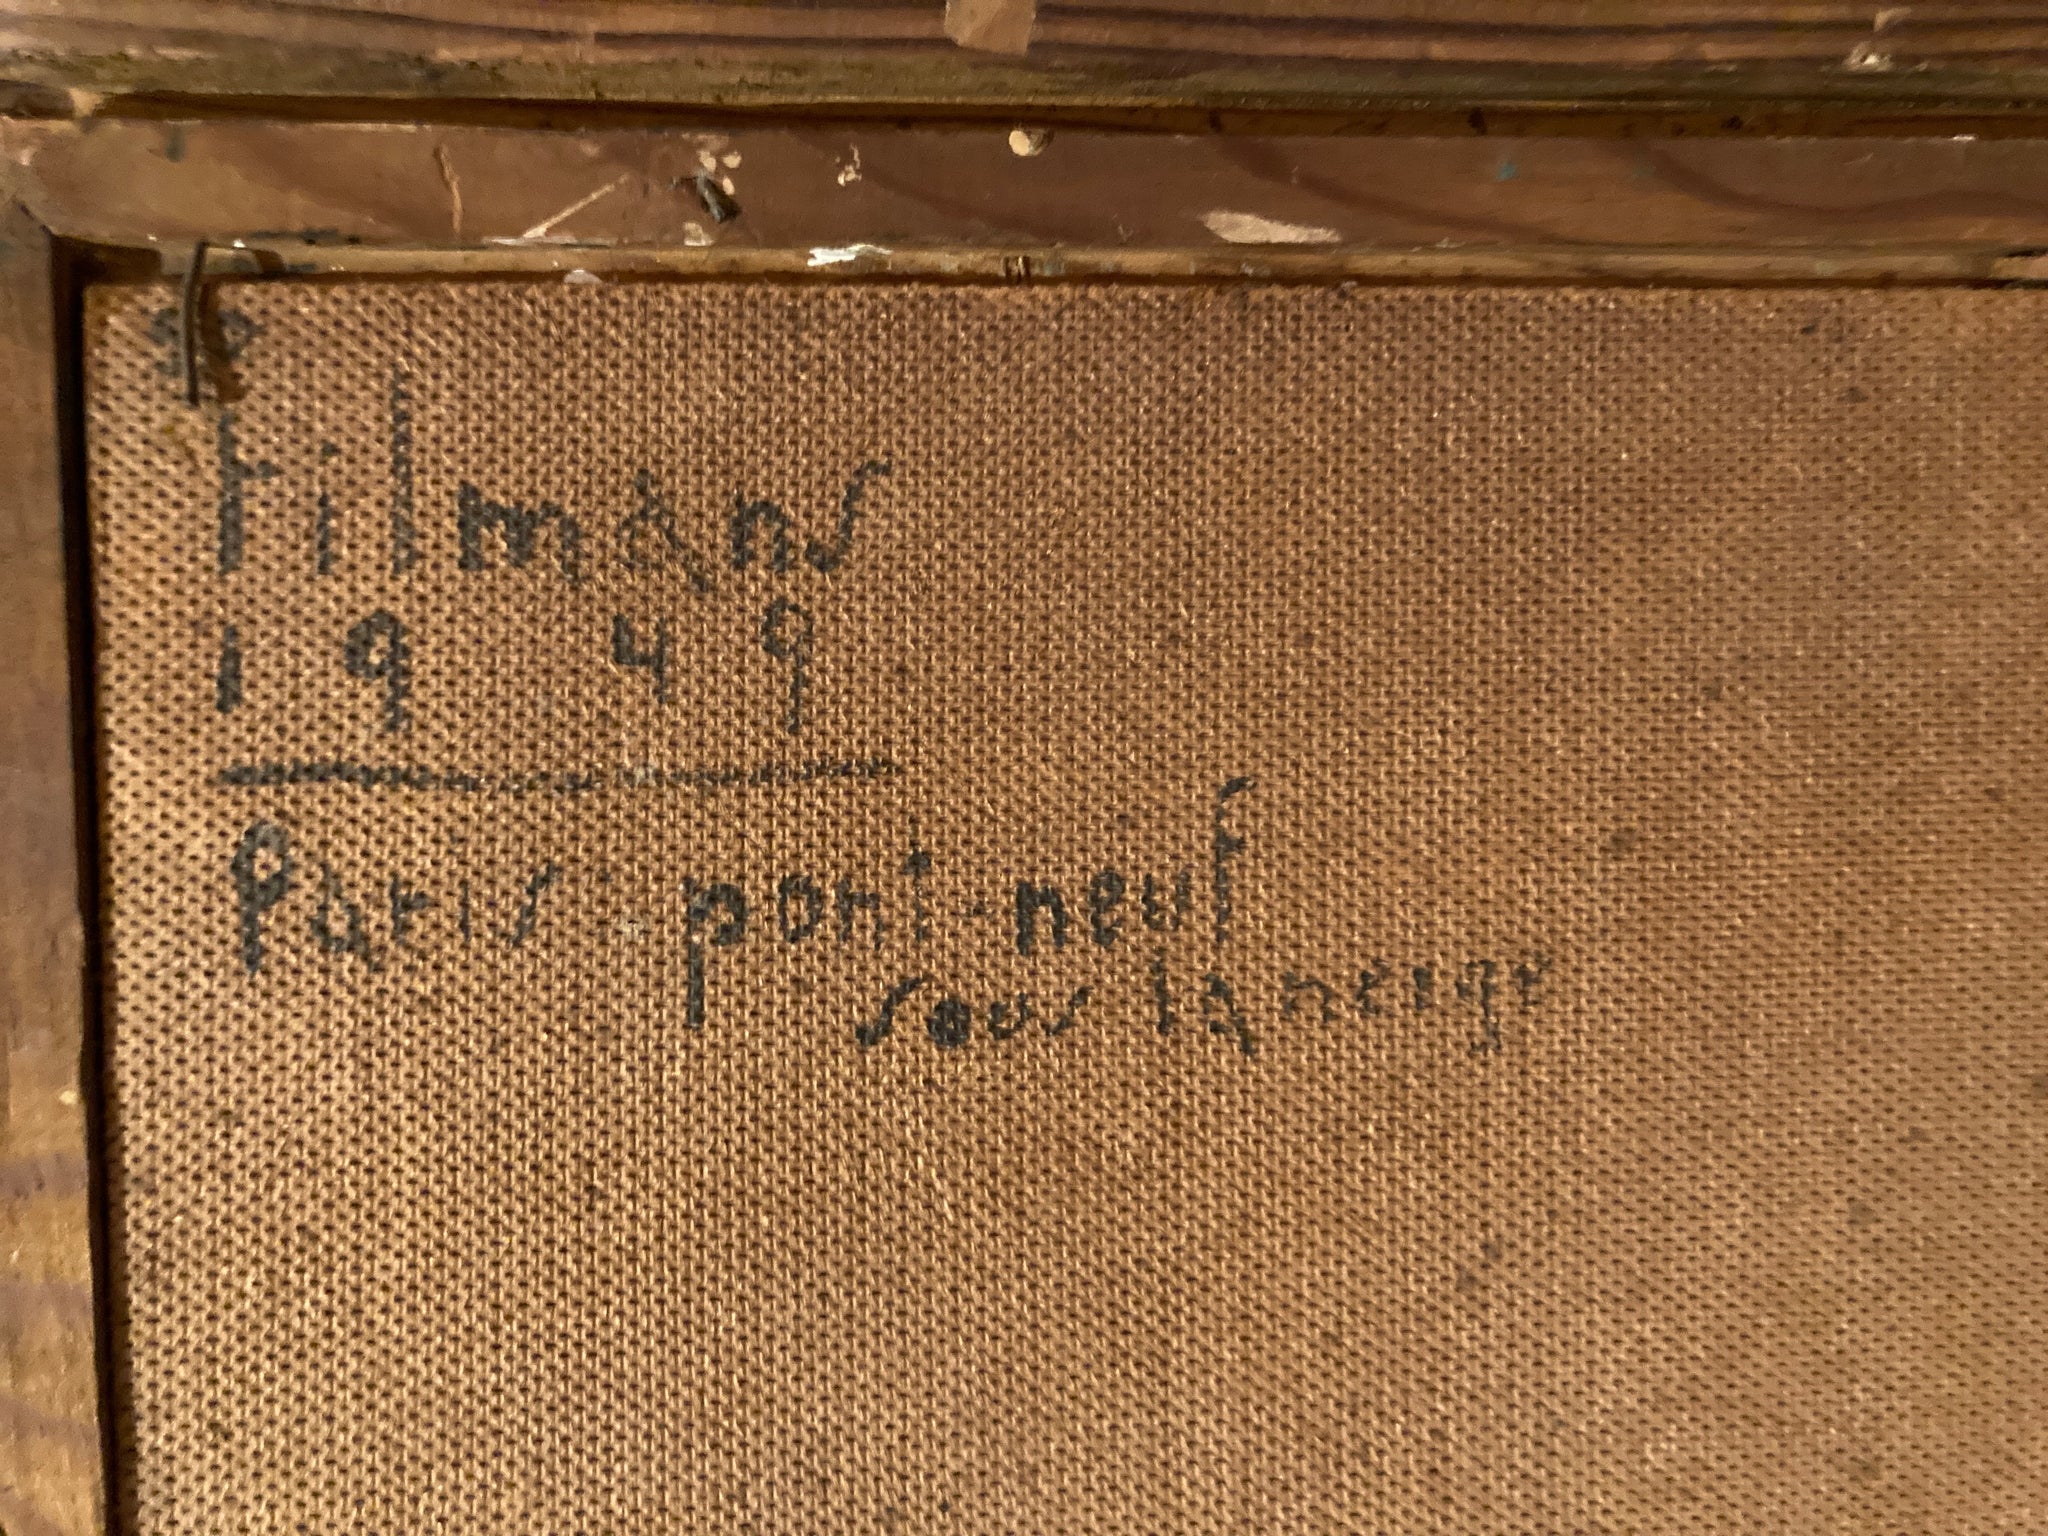 Filmans
1949
Paris pont-neuf
sous la neige